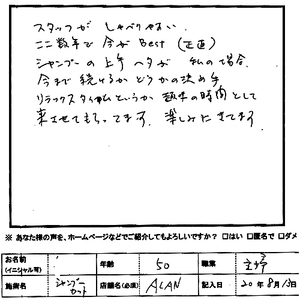 スタッフが しゃべりやすい.
ここ数年で 今が Best (正直)
シャンプーの上手 ヘタが 私の場合
今まで 続けるか どうかの決め手
リラックスタイムというか 趣味の時間として
来させてもらってます. 楽しみにきてます
※ あなた様の声を、ホームページなどでご紹介してもよろしいですか? □はい □匿名で □ダメ
お名前 (イニシャル可) 年齢 50 職業 主婦
施術名 シャンプー カット 店舗名(必須) ALAN 記入日 20年8月13日